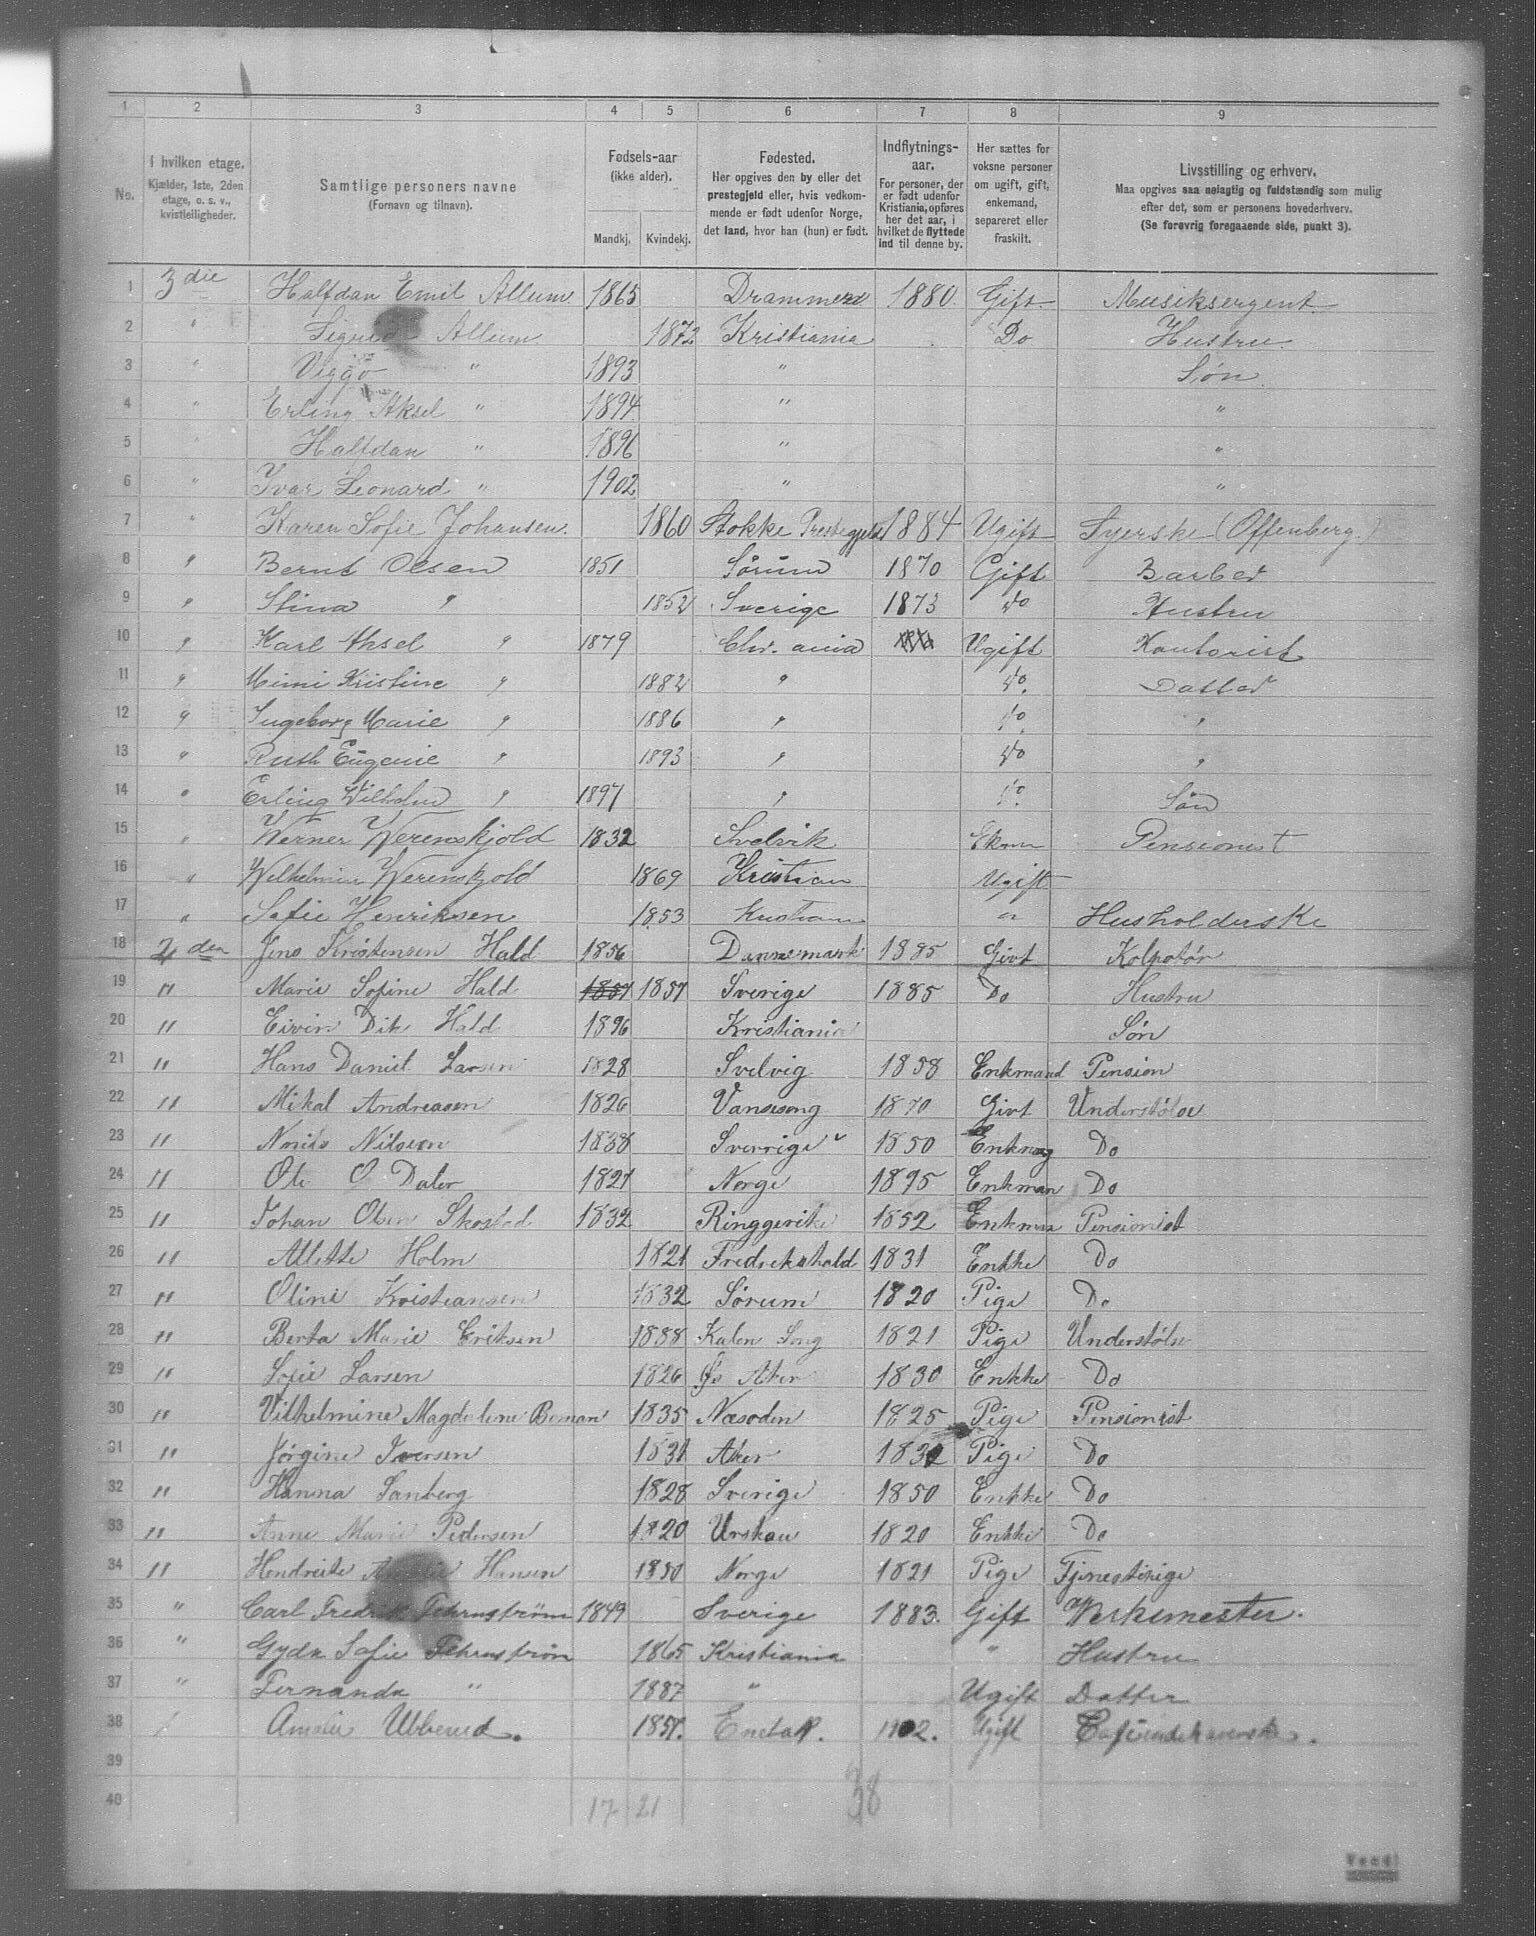 1 2 3 4 5 6 7 8 9
No.
I hvilken etage.
Kjælder, 1ste, 2den
etage, o. s. v.,
kvistleiligheder.
Samtlige personers navne
(Fornavn og tilnavn).
Fødsels-aar
(ikke alder).
Mandkj. Kvindekj.
Fødested.
Her opgives den by eller det
prestegjeld eller, hvis vedkom-
mende er født udenfor Norge,
det land, hvor han (hun) er født.
Indflytnings-
aar.
For personer, der
er født udenfor
Kristiania, opføres
her det aar, i
hvilket de flyttede
ind til denne by.
Her sættes for
voksne personer
om ugift, gift,
enkemand,
separeret eller
fraskilt.
Livsstilling og erhverv.
Maa opgives saa nøiagtig og fuldstændig som mulig
efter det, som er personens hovederhverv.
(Se forøvrig foregaaende side, punkt 3).
1 3die Halfdan Emil Allum 1865 Drammen 1880. Gift Musiksergent.
2 " Signe Allum 1872 Kristiania Do Hustru.
3 " Viggo " 1893 " Søn
4 " Erling Aksel " 1894 " "
5 " Halfdan " 1896 " "
6 " Ivar Leonard " 1902 " "
7 " Karen Sofie Johansen. 1860 Stokke Prestegjeld 1884 Ugift Syerske (Offenberg.)
8 " Bernt Olsen 1851 Sørum 1870 Gift Barber
9 " Stina " 1852 Sverige 1873 do Hustru
10 " Karl Aksel " 1879 Chr. ania Ugift Kontorist
11 " Mimi Kristine " 1882 " do. Datter
12 " Ingeborg Marie " 1886 " do. "
13 " Ruth Eugenie " 1893 " do "
14 " Erling Wilhelm " 1897 " do. Søn
15 " Werner Werenskjold 1832 Svelvik Ekem Pensionist
16 " Wilhelmine Werenskjold 1869 Kristian Ugift
17 " Sofie Henriksen 1853 Kristian " Husholderske
18 2den Jens Kristensen Hald 1856 Dannemark 1885 Givt Kolpotør
19 " Marie Sofine Hald 1857 1857 Sverige 1885 Do Hustru
20 " Eivin Dik Hald 1896 Kristiania Søn
21 " Hans Daniel Larsen 1828 Svelvig 1858 Enkmand Pension
22 " Mikal Andreasen 1826 Vansesong 1870 Givt Understølse
23 " Nonils Nilsen 1838 Sverrige 1850 Enkmag Do
24 " Ole O Daler 1821 Norge 1895 Enkman Do
25 " Johan Olsen Skostad 1832 Ringgerike 1852 Enkman Pensionist
26 " Allette Holm 1821 Fredrikshald 1831 Enkke Do
27 " Oline Kristiansen 1832 Sørum 1820 Pige Do
28 " Berta Marie Eriksen 1838 Kalen Song 1821 Pige Understølse
29 " Sofie Larsen 1826 Øs Aker 1830 Enkke Do
30 " Vilhelmine Magdelene Beman 1835 Næsoden 1825 Pige Pensionist
31 " Jørgine Iversen 1831 Aker 1832 Pige Do
32 " Hanna Sanberg 1828 Sverige 1850 Enkke Do
33 " Anne Marie Pedersen 1820 Urskau 1820 Enkke Do
34 " Hendreike Hansen 1830 Norge 1821 Pige Tjenestepige
35 " Carl Fredrik Fehrnstrøm 1849 Sverige 1883. Gift Værksmester.
36 " Gyda Sofie Fehrnstrøm 1865 Kristiania " Hustru
37 " Fernanda " 1887 " Ugift Datter
38 Amalie Ulverud. 1857. Enebak. 1902. Ugift Caféindehaverske.
39
40 17 21 38